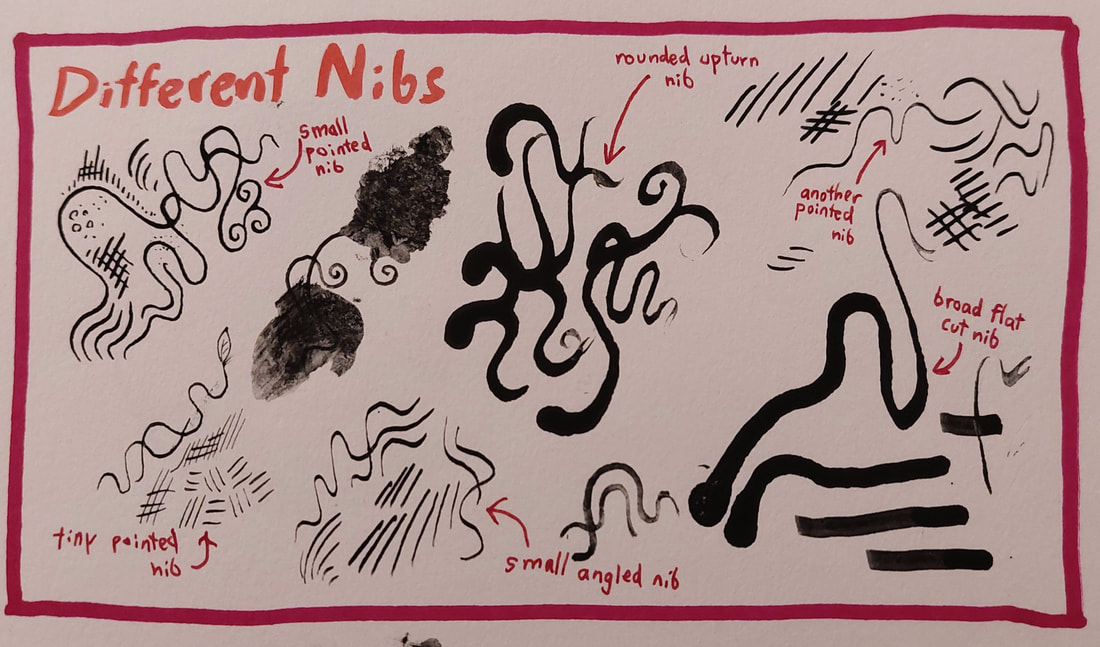 Different Nibs
small
pointed
nib
rounded upturn
nib
another
pointed
nib
broad flat
cut nib
tiny pointed
nib
small angled nib